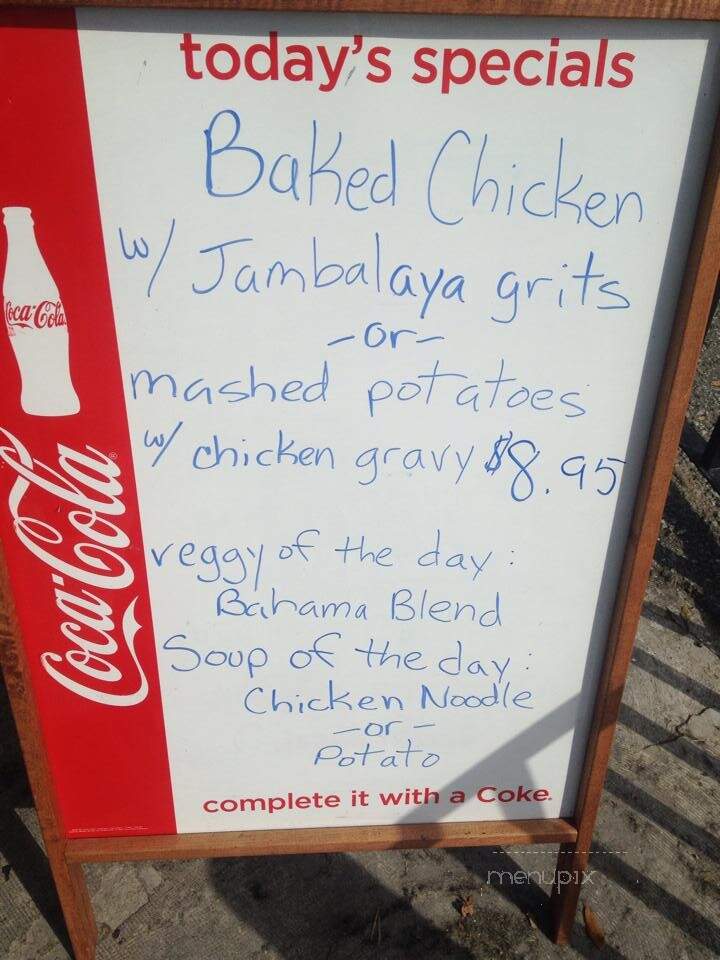 today's specials
Baked Chicken
w/ Jambalaya grits
-or-
mashed potatoes
w/ chicken gravy $8.95
veggy of the day:
Bahama Blend
Soup of the day:
Chicken Noodle
-or-
Potato
complete it with a Coke.
Coca-Cola
Coca-Cola®
menupix